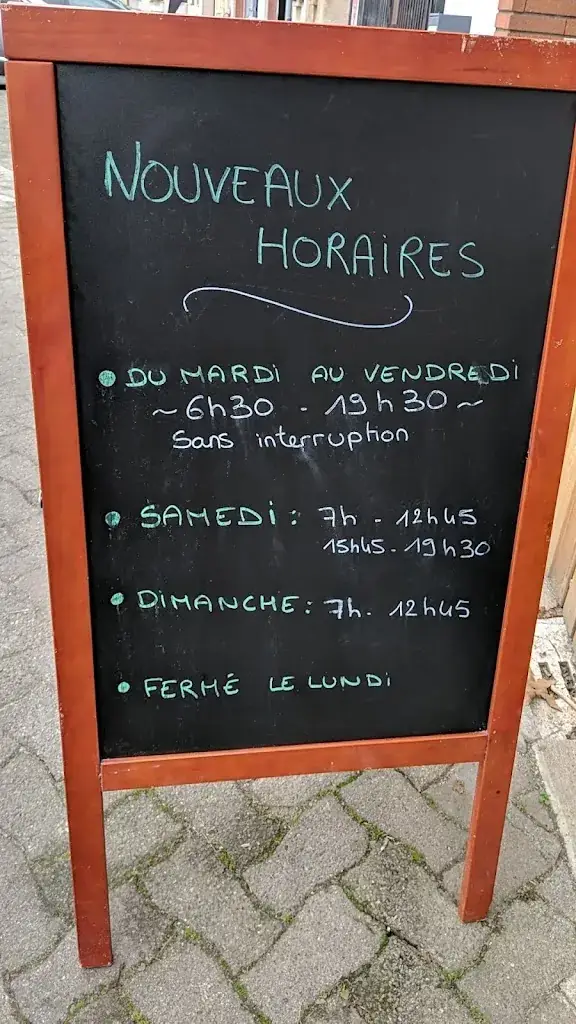 NOUVEAUX
HORAIRES
• DU MARDI AU VENDREDI
~ 6h30 - 19h30 ~
Sans interruption
• SAMEDI : 7h - 12h45
15h45 - 19h30
• DIMANCHE : 7h - 12h45
• FERMÉ LE LUNDI